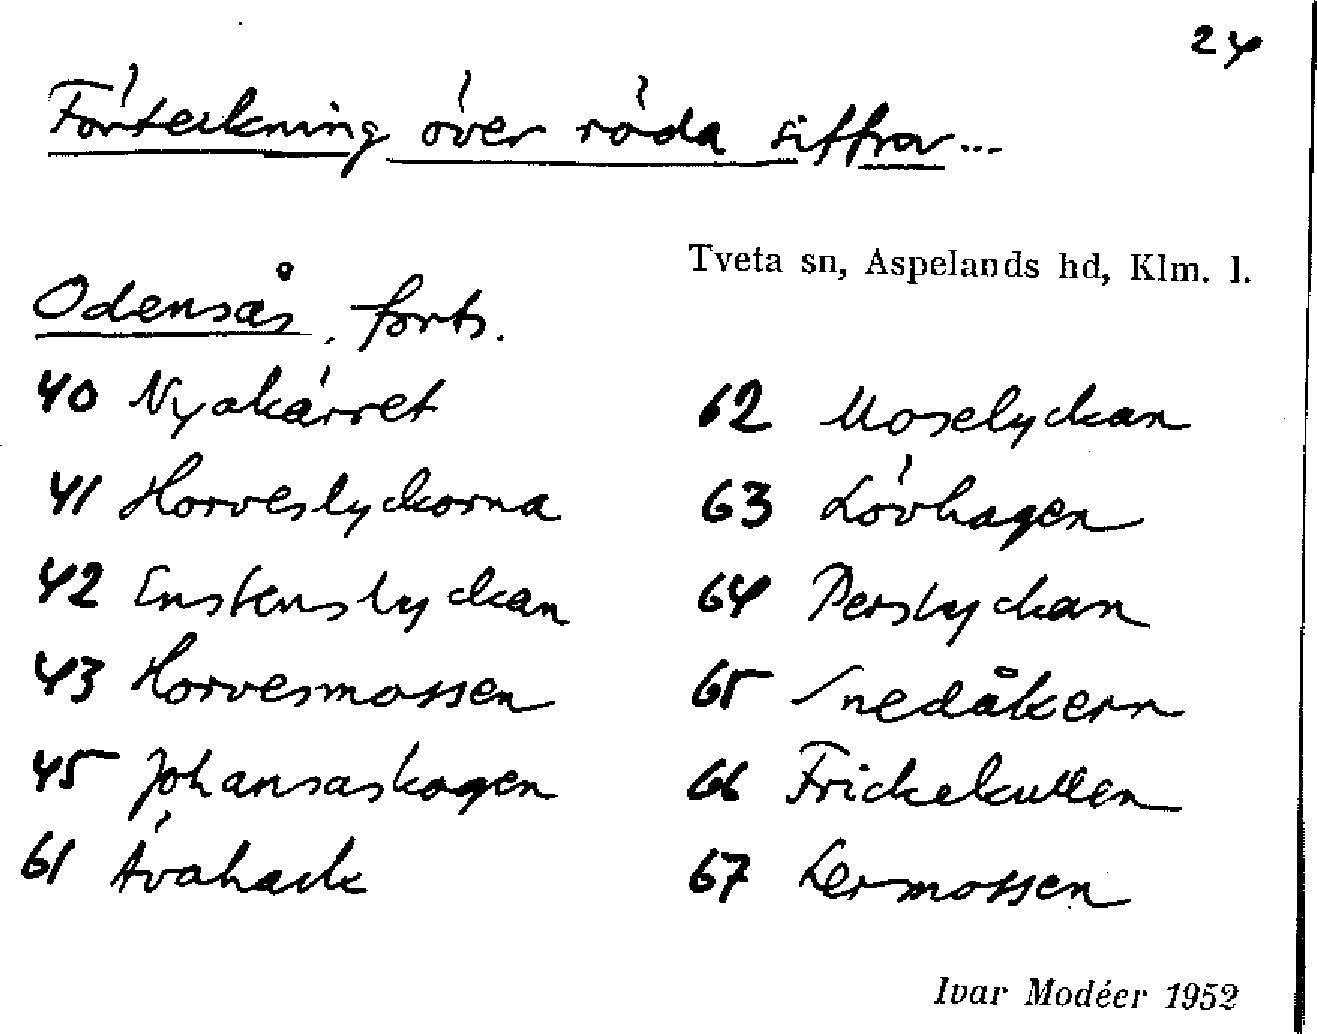 24
Förteckning över röda siffror...
Tveta sn, Aspelands hd, Klm. l.
Odensås, forts.
40 Nyakärret
41 Horveslyckorna
42 Enstenslyckan
43 Horvesmossen
45 Johansaskogen
61 Ävahack
62 Moselyckan
63 Lövhagen
64 Perslyckan
65 Snedåkern
66 Frickekullen
67 Lermossen
Ivar Modéer 1952